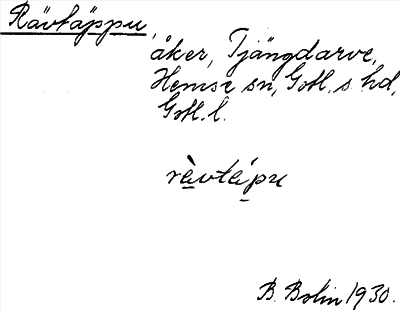 Rävtäppu,
åker, Tjängdarve,
Hemse sn, Gotl. s. hd,
Gotl. l.
rävtäpu
B. Bolin 1930.